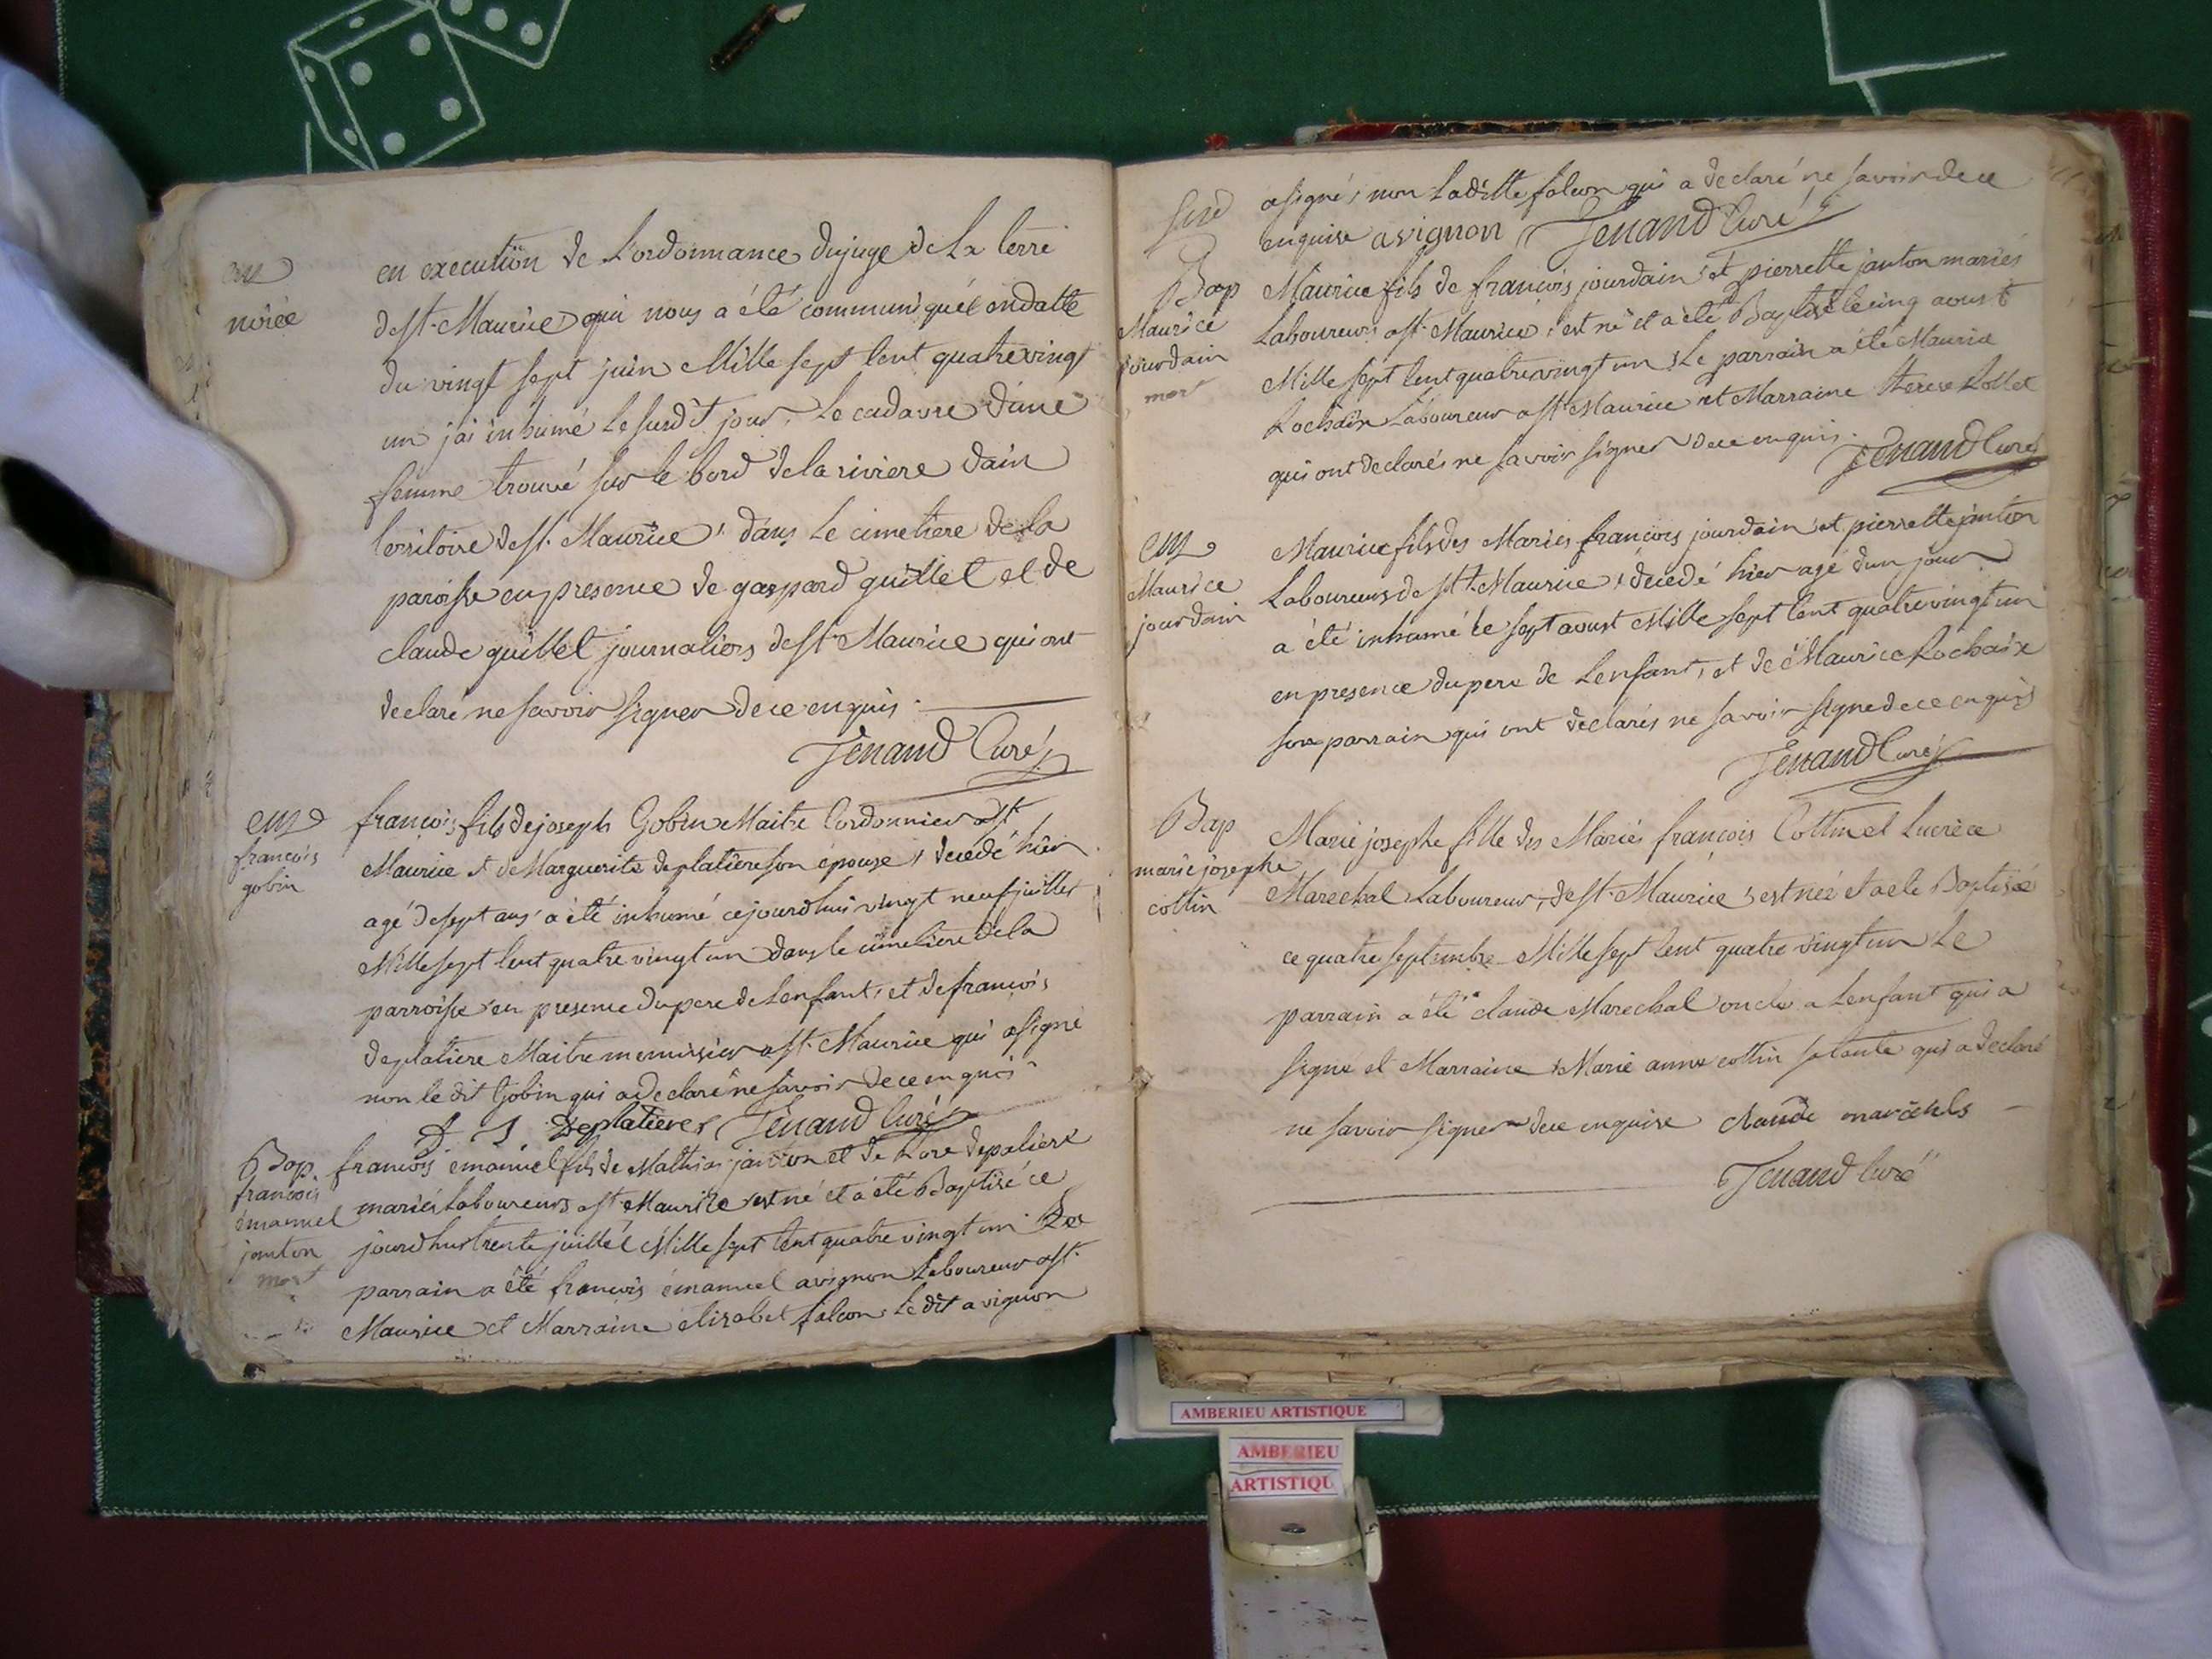 en execution de L'ordonnance dujuge de La terre
de st. Maurice qui nous a été communiquéé endatte
du vingt sept juin Mille sept Cent quatrevingt
un jai inhumé Le surdit jour, Le cadavre d'une
femme trouvé sur le bord de la riviere dain
territoire de st. Maurice, dans Le cimetiere de la
paroisse en presence de gaspard guillet et de
claude guillet journaliers de st Maurice qui ont
declaré ne savoir signer de ce enquis.
Jenand Curé
noiée
francois fils de joseph Gobin Maitre Cordonnier a st
Maurice et de Marguerite deplatiere son épouse, decédé hier
agé de sept ans a été inhumé cejourdhui vingt neuf juillet
Mille sept Cent quatre vingt un dans le cimetiere de la
parroisse en presence du pere de Lenfant, et de francois
deplatiere Maitre menuisier a st. Maurice qui a signé
non le dit Gobin qui a declaré ne savoir de ce enquis
deplatieres Jenand Curé
francois
gobin
francois emanuel fils de Mathias janton et de Lore depaliere
mariés Laboureurs a st Maurice est né et a été Baptisé ce
jourdhui trente juillet Mille sept Cent quatre vingt un Le
parrain a été francois émanuel avignon Laboureur a st.
Maurice et Marraine élisabet falcon, Le dit avignon
Bap.
francois
émanuel
janton
mort
a signé, non Ladditte falcon qui a declaré ne savoir de ce
enquise avignon Jenand Curé
Maurice fils de francois jourdain et pierrette janton mariés
Laboureurs a st. Maurice, est né et a été Baptisé le cinq aoust
Mille sept Cent quatrevingt un, Le parrain a été Maurice
Rochaix Laboureur a st Maurice et Marraine Therese Rollet
qui ont declarés ne savoir signer de ce enquis.
Jenand Curé
Bap
Maurice
jourdain
mort
Maurice fils des Mariés francois jourdain et pierrette janton
Laboureurs de st. Maurice, décédé hier agé dun jour
a été inhumé le sept aoust Mille sept Cent quatrevingt un
en presence du pere de Lenfant, et de Maurice Rochaix
son parrain qui ont declarés ne savoir signe de ce enquis
Jenand Curé
Maurice
jourdain
Marie josephe fille des Mariés francois Cottin et Lucrèce
Marechal Laboureur, de st. Maurice, est neé et a ete Baptisée
ce quatre septembre Mille sept Cent quatre vingt un Le
parrain a été claude Marechal oncle a Lenfant qui a
signe et Marraine Marie anne cottin sa tante qui a declaré
ne savoir signer de ce enquise claude marechals
Jenand Curé
Bap
marie josephe
cottin
AMBERIEU ARTISTIQUE
AMBERIEU
ARTISTIQU